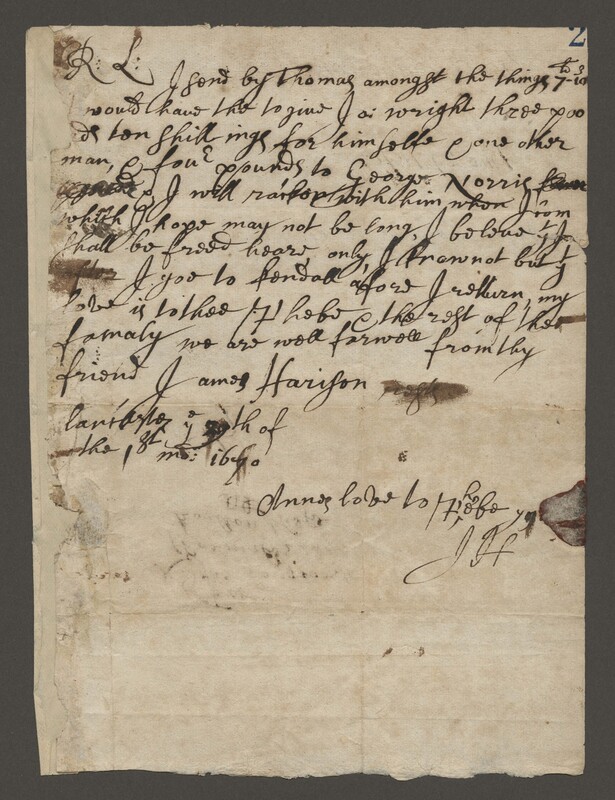 2
R: L: I send by Thomas amongst the things 7-10
would have the to give Ja: wright three poo
ds ten shillings for himselfe & one other
man, & fouer pounds to George Norris
& I will racken with him when I com
which I hope may not be long, I beleve I
shall be freed heare, only I know not but I
I goe to kendall afore I return, my
love is to thee Phebe & the rest of thee
famaly we are well farwell from thy
friend James Harison
lancaster ye th of
the 1st mo: 16
Annes love to Phebe
JH